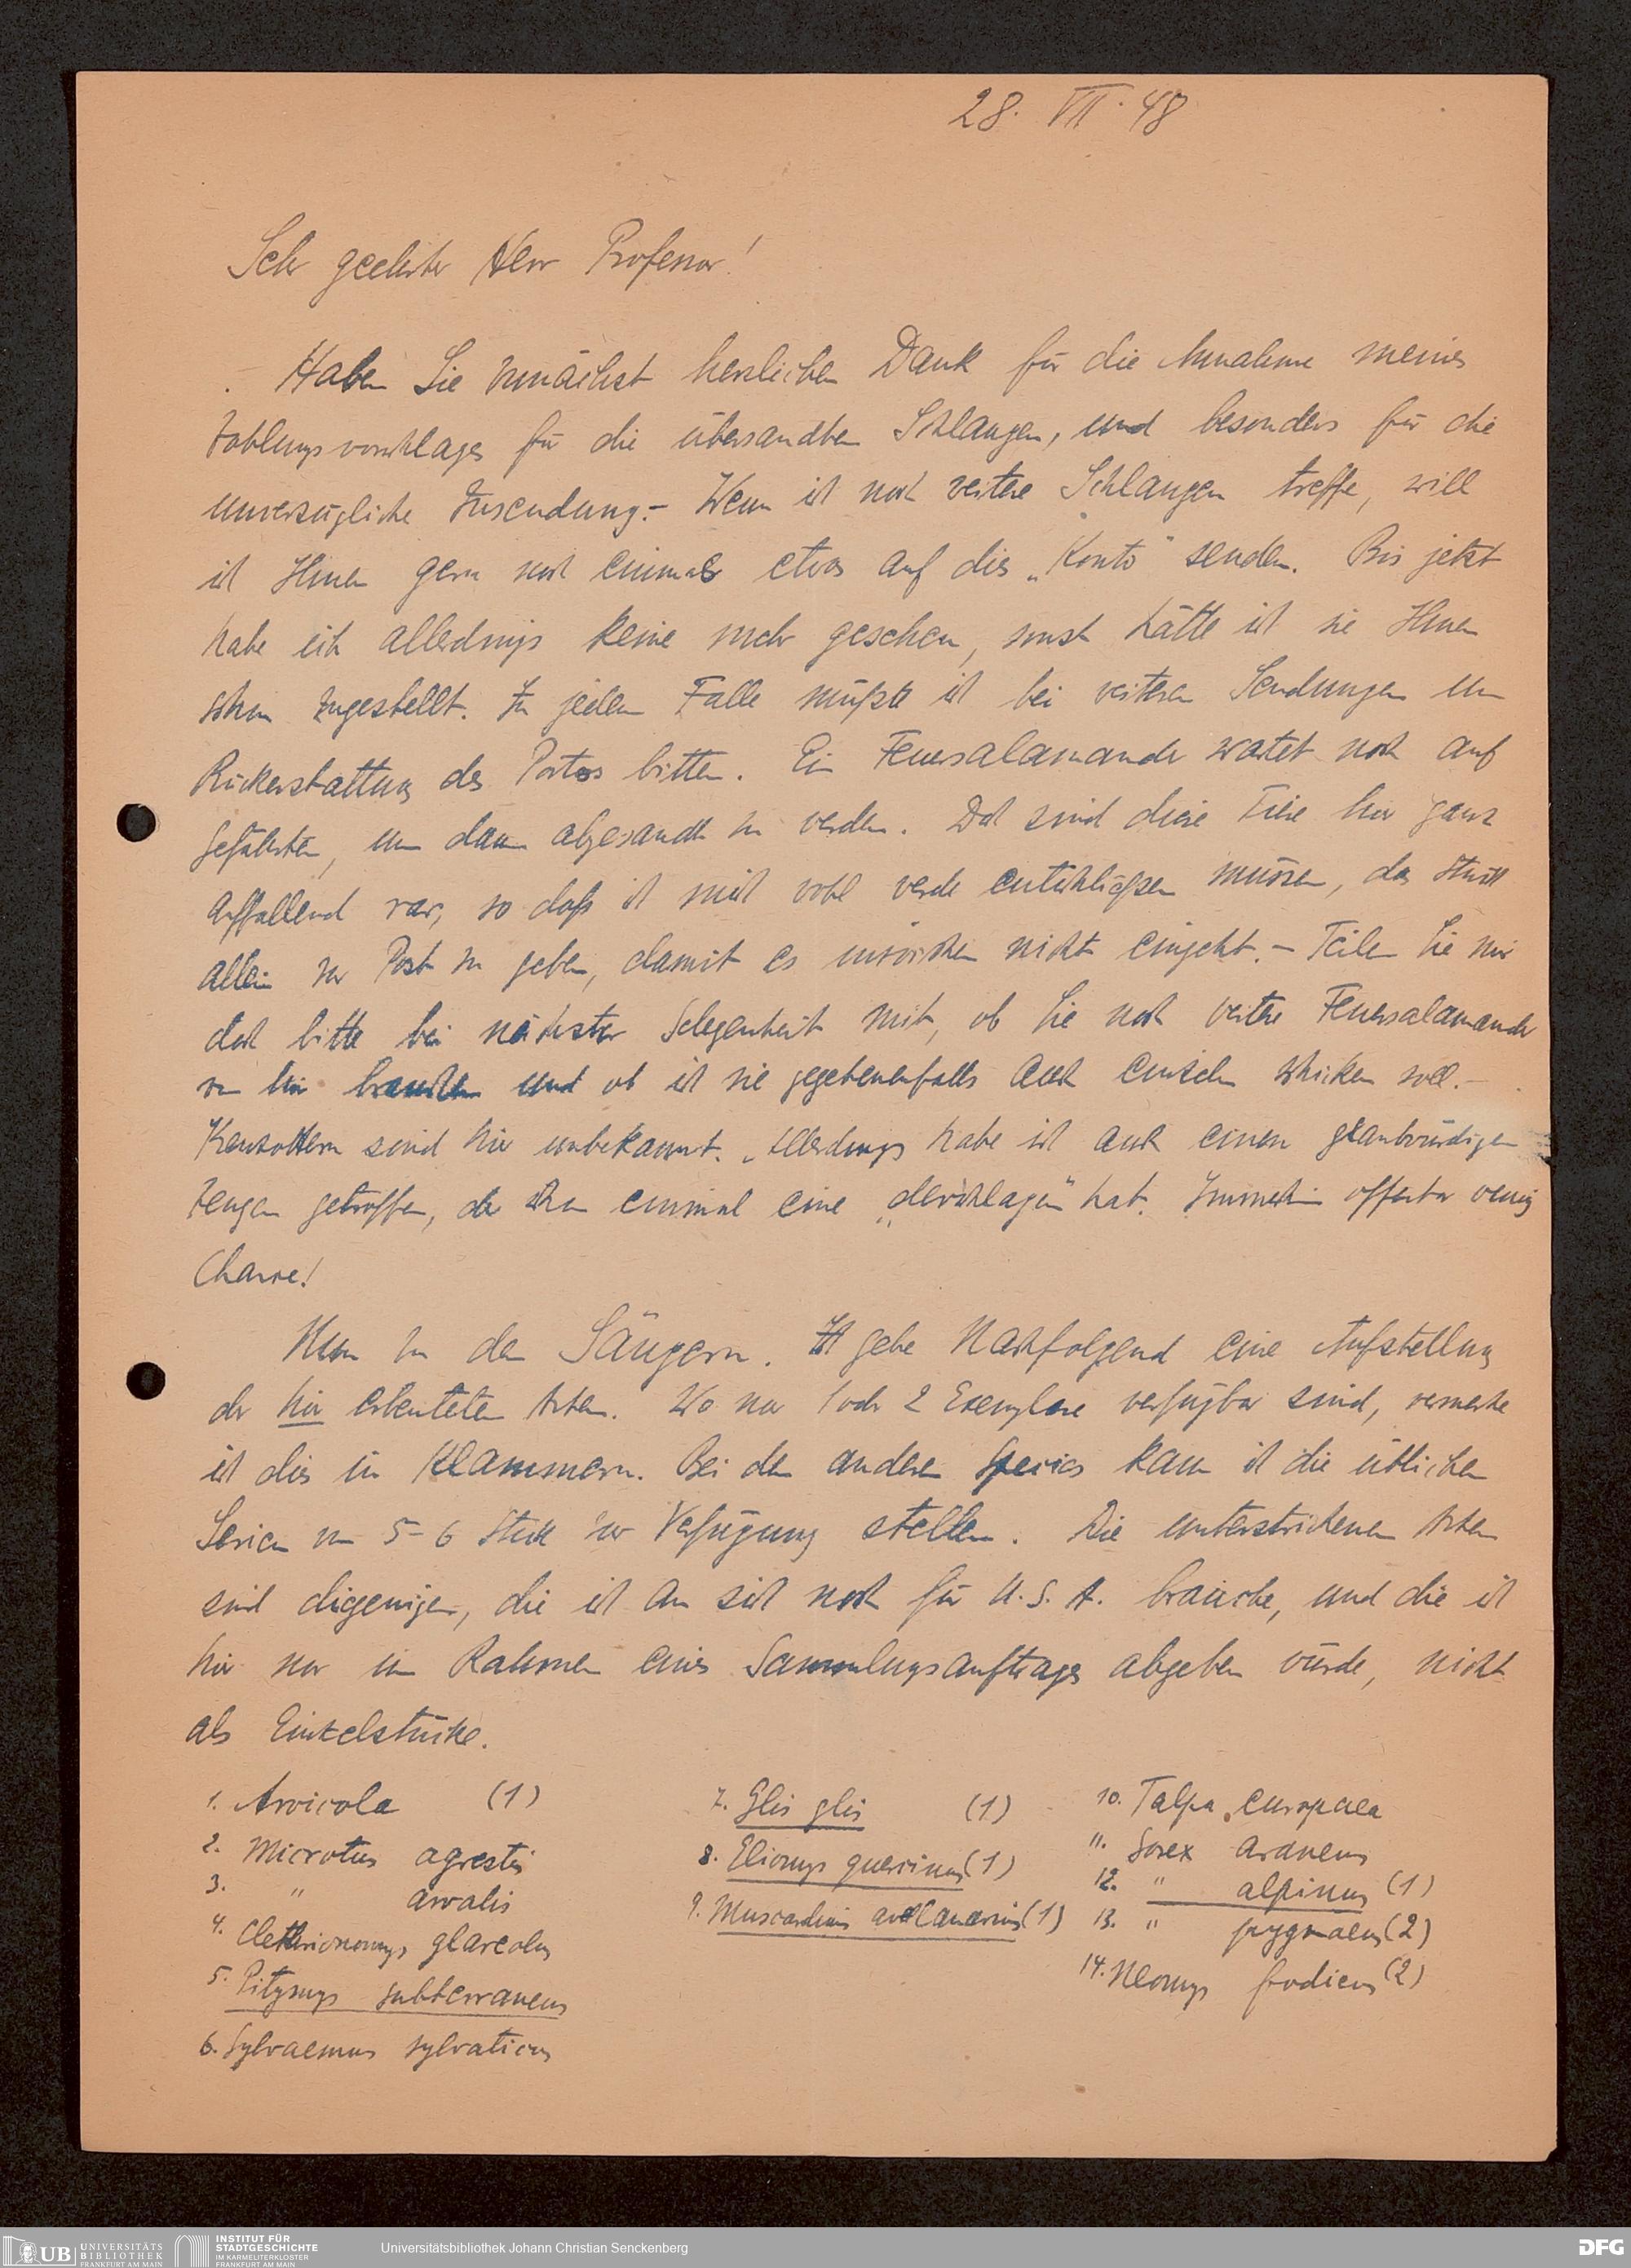 28. VII. 48
Sehr geehrter Herr Professor!
Haben Sie zunächst herzlichen Dank für die Annahme meines
Zahlungsvorschlages für die übersandten Schlangen, und besonders für die
unverzügliche Zusendung. – Wenn ich noch weitere Schlangen treffe, will
ich Ihnen gern noch einmal etwas auf dies „Konto" senden. Bis jetzt
habe ich allerdings keine mehr gesehen, sonst hätte ich sie Ihnen
schon zugestellt. In jedem Falle müßte ich bei weiteren Sendungen um
Rückerstattung des Portos bitten. Ein Feuersalamander wartet noch auf
Gefährten, um dann abgesandt zu werden. Doch sind diese Tiere hier ganz
auffallend rar, so daß ich mich wohl werde entschließen müssen, das Stück
allein zur Post zu geben, damit es inzwischen nicht eingeht. – Teilen Sie mir
doch bitte bei nächster Gelegenheit mit, ob Sie noch weitere Feuersalamander
von hier brauchen und ob ich sie gegebenenfalls auch einzeln schicken soll. –
Kreuzottern sind hier unbekannt. Allerdings habe ich auch einen glaubwürdigen
Zeugen getroffen, der schon einmal eine „derschlagen" hat. Immerhin offenbar wenig
Chance!
Nun zu den Säugern. Ich gebe nachfolgend eine Aufstellung
der hier erbeuteten Arten. Wo nur 1 oder 2 Exemplare verfügbar sind, vermerke
ich dies in Klammern. Bei den anderen Species kann ich die üblichen
Serien von 5-6 Stück zur Verfügung stellen. Die unterstrichenen Arten
sind diejenigen, die ich an sich noch für U.S.A. brauche, und die ich
hier nur im Rahmen eines Sammlungsauftrages abgeben würde, nicht
als Einzelstücke.
1. Arvicola (1)
2. Microtus agrestis
3. " arvalis
4. Clethrionomys glareolus
5. Pitymys subterraneus
6. Sylvaemus sylvaticus
7. Glis glis (1)
8. Eliomys quercinus (1)
9. Muscardinus avellanarius (1)
10. Talpa europaea
11. Sorex araneus
12. " alpinus (1)
13. " pygmaeus (2)
14. Neomys fodiens (2)
UB UNIVERSITÄTS BIBLIOTHEK FRANKFURT AM MAIN
INSTITUT FÜR STADTGESCHICHTE IM KARMELITERKLOSTER FRANKFURT AM MAIN
Universitätsbibliothek Johann Christian Senckenberg
DFG